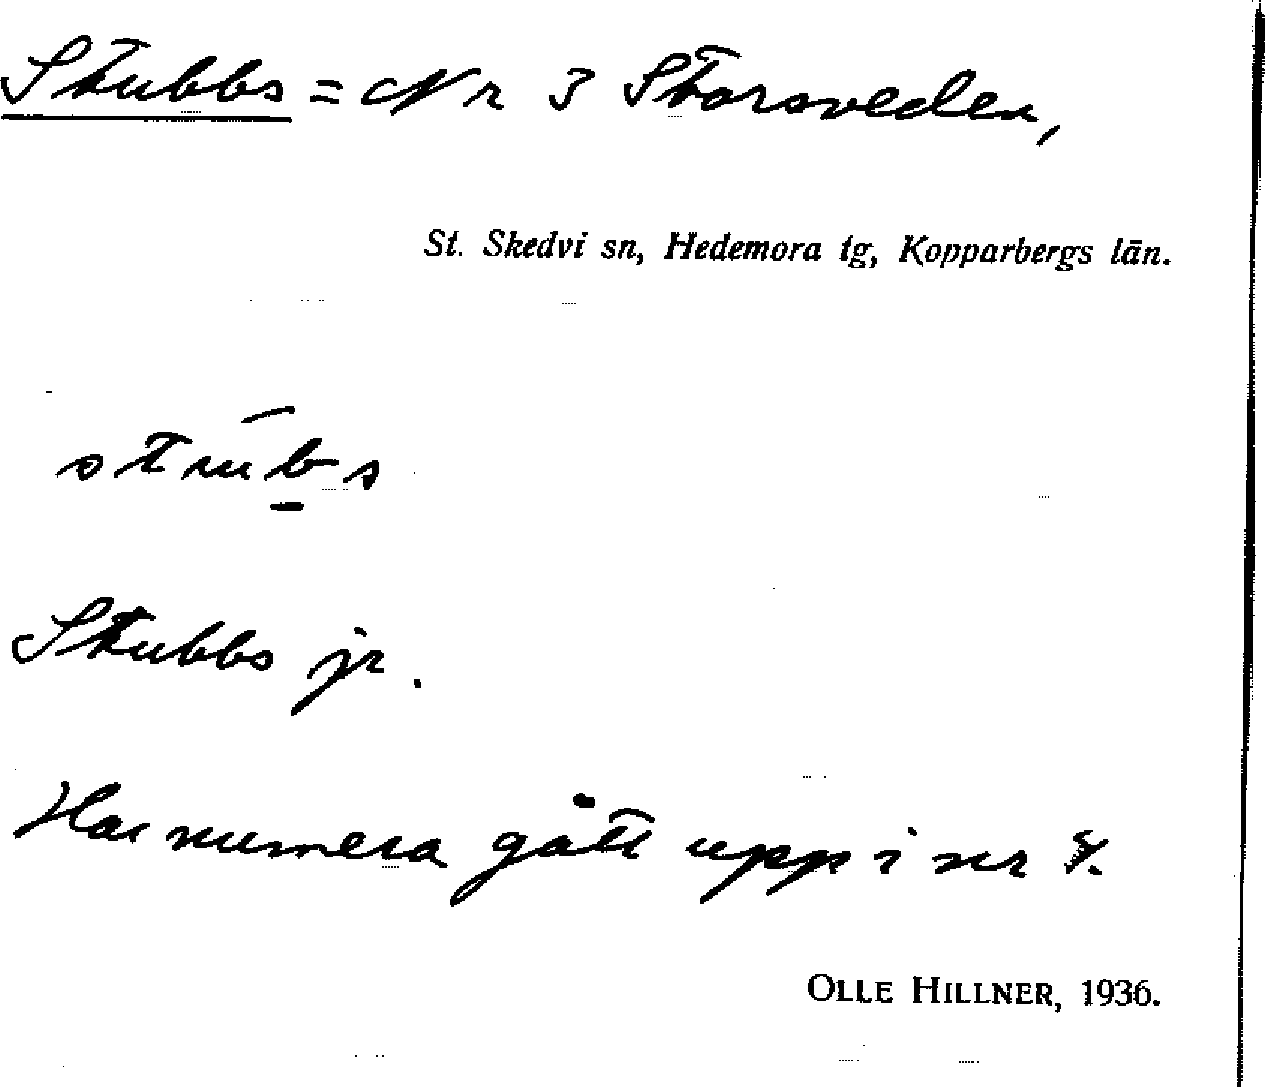 Stubbs = Nr 3 Storsveden,
St. Skedvi sn, Hedemora tg, Kopparbergs län.
stubs
Stubbs jr.
Har numera gått upp i nr
OLLE HILLNER, 1936.